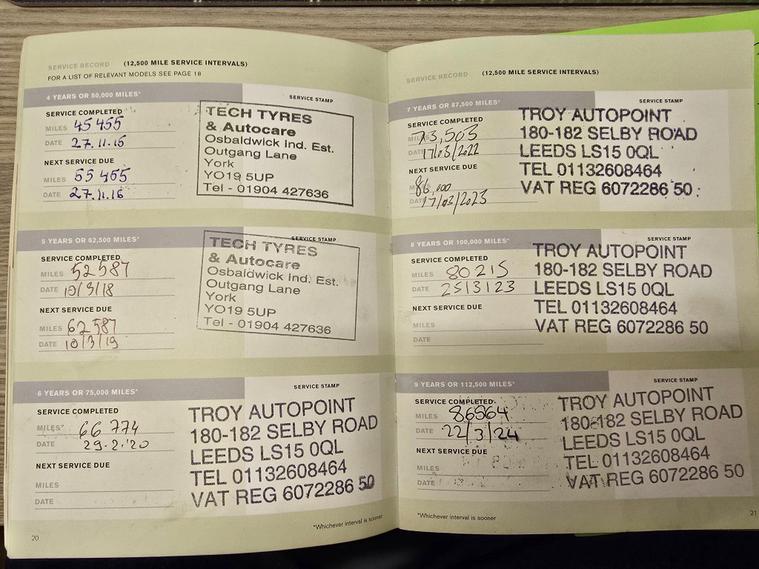 SERVICE RECORD (12,500 MILE SERVICE INTERVALS)
FOR A LIST OF RELEVANT MODELS SEE PAGE 18
4 YEARS OR 50,000 MILES*
SERVICE STAMP
SERVICE COMPLETED
MILES 45 455
DATE 27.11.15
NEXT SERVICE DUE
MILES 55 455
DATE 27.11.16
TECH TYRES
& Autocare
Osbaldwick Ind. Est.
Outgang Lane
York
YO19 5UP
Tel - 01904 427636
5 YEARS OR 62,500 MILES*
SERVICE STAMP
SERVICE COMPLETED
MILES 52587
DATE 10/3/18
NEXT SERVICE DUE
MILES 62 587
DATE 10/3/19
TECH TYRES
& Autocare
Osbaldwick Ind. Est.
Outgang Lane
York
YO19 5UP
Tel - 01904 427636
6 YEARS OR 75,000 MILES*
SERVICE STAMP
SERVICE COMPLETED
MILES* 66 774
DATE 29.2.'20
NEXT SERVICE DUE
MILES
DATE
TROY AUTOPOINT
180-182 SELBY ROAD
LEEDS LS15 0QL
TEL 01132608464
VAT REG 6072286 50
*Whichever interval is sooner
20
SERVICE RECORD (12,500 MILE SERVICE INTERVALS)
7 YEARS OR 87,500 MILES*
SERVICE STAMP
SERVICE COMPLETED
MILES 73,503
DATE 17/03/2022
NEXT SERVICE DUE
DATE 17/03/2023
TROY AUTOPOINT
180-182 SELBY ROAD
LEEDS LS15 0QL
TEL 01132608464
VAT REG 6072286 50
8 YEARS OR 100,000 MILES*
SERVICE STAMP
SERVICE COMPLETED
MILES 80215
DATE 25/3/23
NEXT SERVICE DUE
MILES
DATE
TROY AUTOPOINT
180-182 SELBY ROAD
LEEDS LS15 0QL
TEL 01132608464
VAT REG 6072286 50
9 YEARS OR 112,500 MILES*
SERVICE STAMP
SERVICE COMPLETED
MILES 86564
DATE 22/3/24
NEXT SERVICE DUE
MILES
DATE
TROY AUTOPOINT
180-182 SELBY ROAD
LEEDS LS15 0QL
TEL 01132608464
VAT REG 6072286 50
*Whichever interval is sooner
21